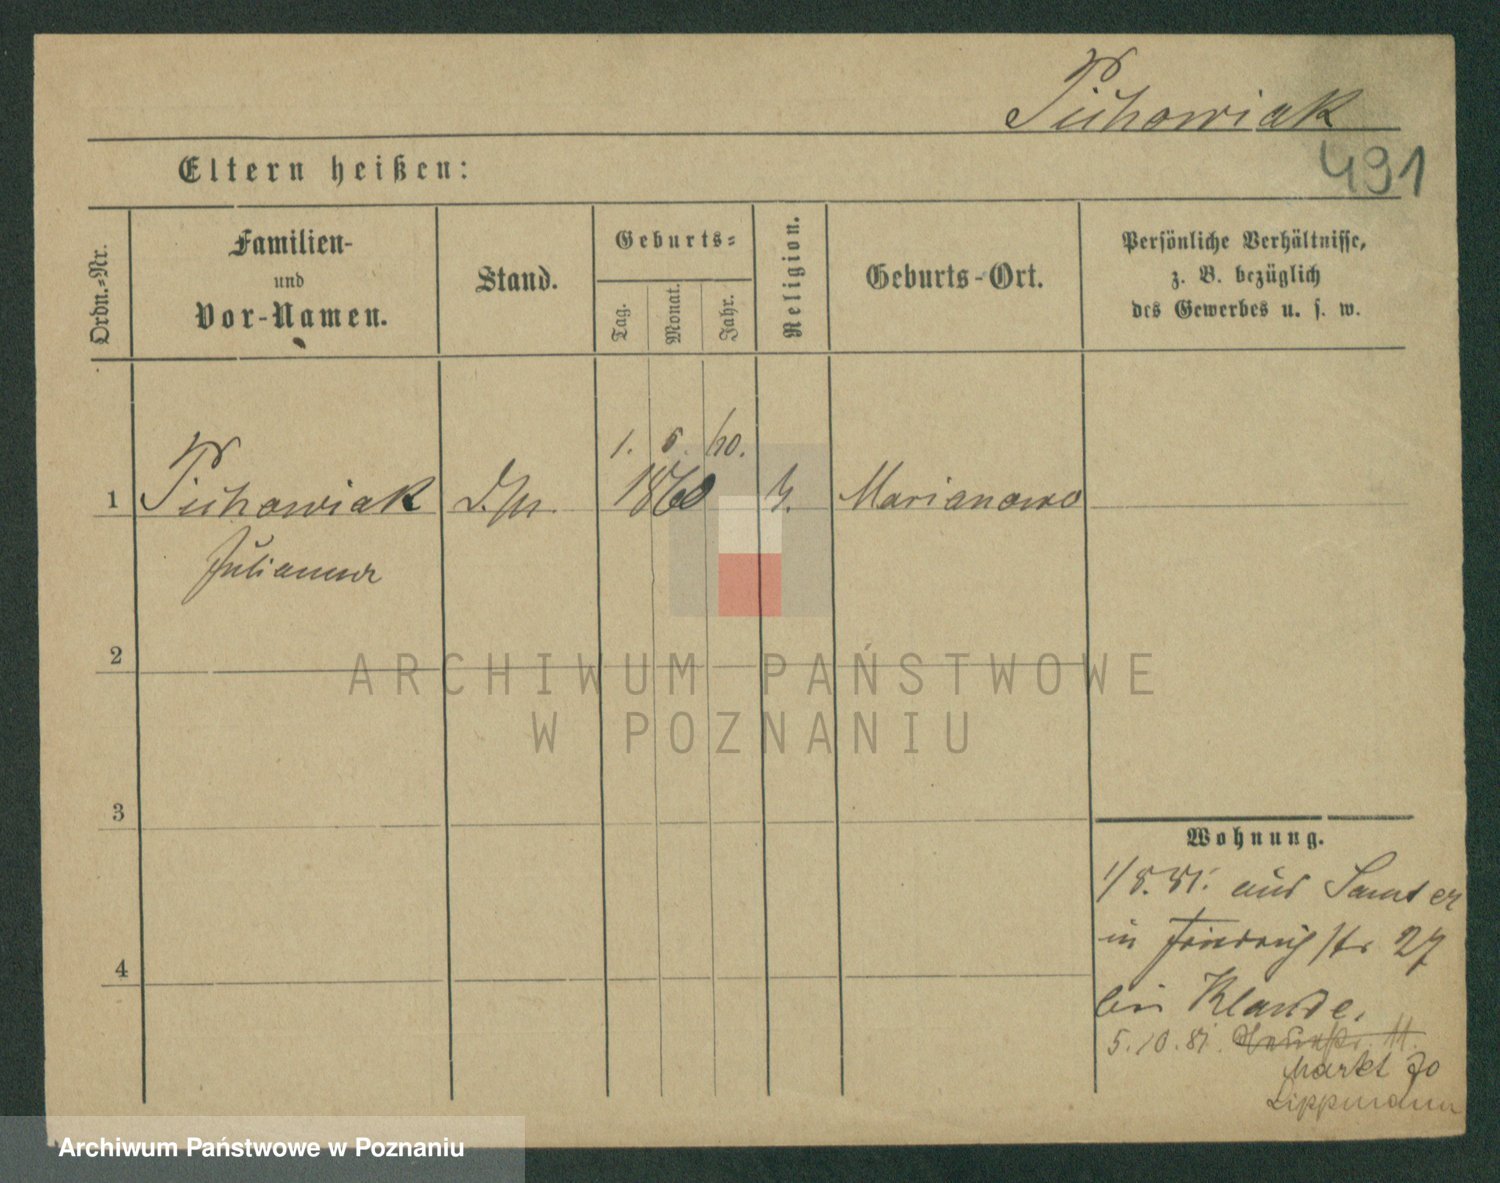 Pichowiak
491
Eltern heißen:
Ordn.-Nr.
Familien-
und
Vor-Namen.
Stand.
Geburts-
Tag.
Monat.
Jahr.
Religion.
Geburts-Ort.
Persönliche Verhältnisse,
z. B. bezüglich
des Gewerbes u. s. w.
1. 6.
1 Pichowiak 1860 Marianowo
Julianna
2
3
4
Wohnung.
1/8. 81. aus Samter
in Friedrichstr 27
bei
5.10.81.
Markt
Lippmann
ARCHIWUM PAŃSTWOWE
W POZNANIU
Archiwum Państwowe w Poznaniu